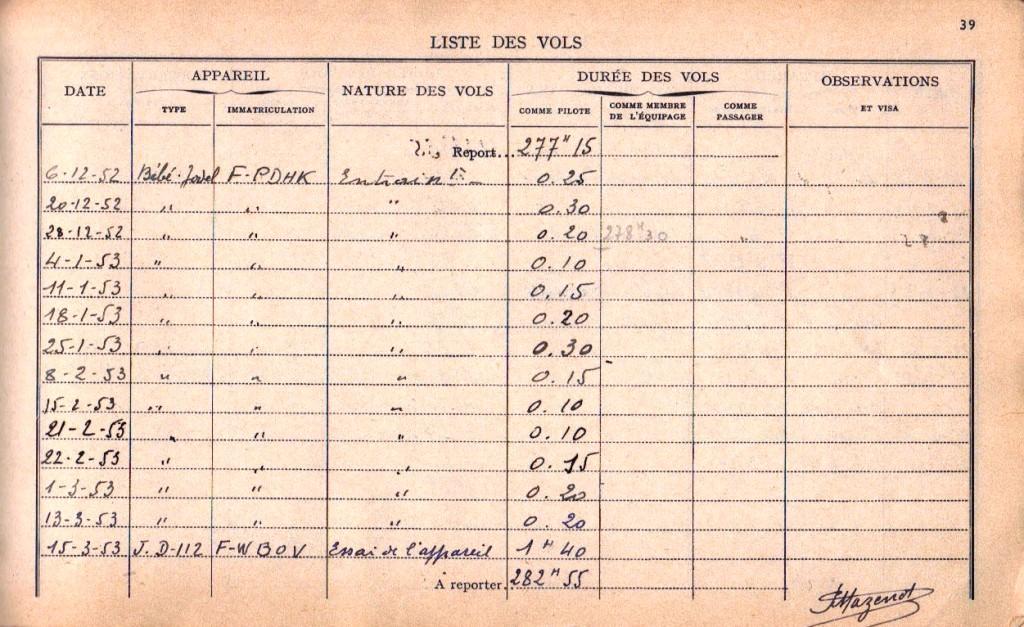 39
LISTE DES VOLS
DATE APPAREIL NATURE DES VOLS DURÉE DES VOLS OBSERVATIONS ET VISA
TYPE IMMATRICULATION COMME PILOTE COMME MEMBRE DE L'ÉQUIPAGE COMME PASSAGER
Report... 277H15
6-12-52 Bébé-Jodel F-PDHK Entrainnt 0.25
20-12-52 " " " 0.30
28-12-52 " " " 0.20 278H30 "
4-1-53 " " " 0.10
11-1-53 " " " 0.15
18-1-53 " " " 0.20
25-1-53 " " " 0.30
8-2-53 " " " 0.15
15-2-53 " " " 0.10
21-2-53 " " " 0.10
22-2-53 " " " 0.15
1-3-53 " " " 0.20
13-3-53 " " " 0.20
15-3-53 J.D-112 F-WBOV Essai de l'appareil 1H40
A reporter.. 282H55